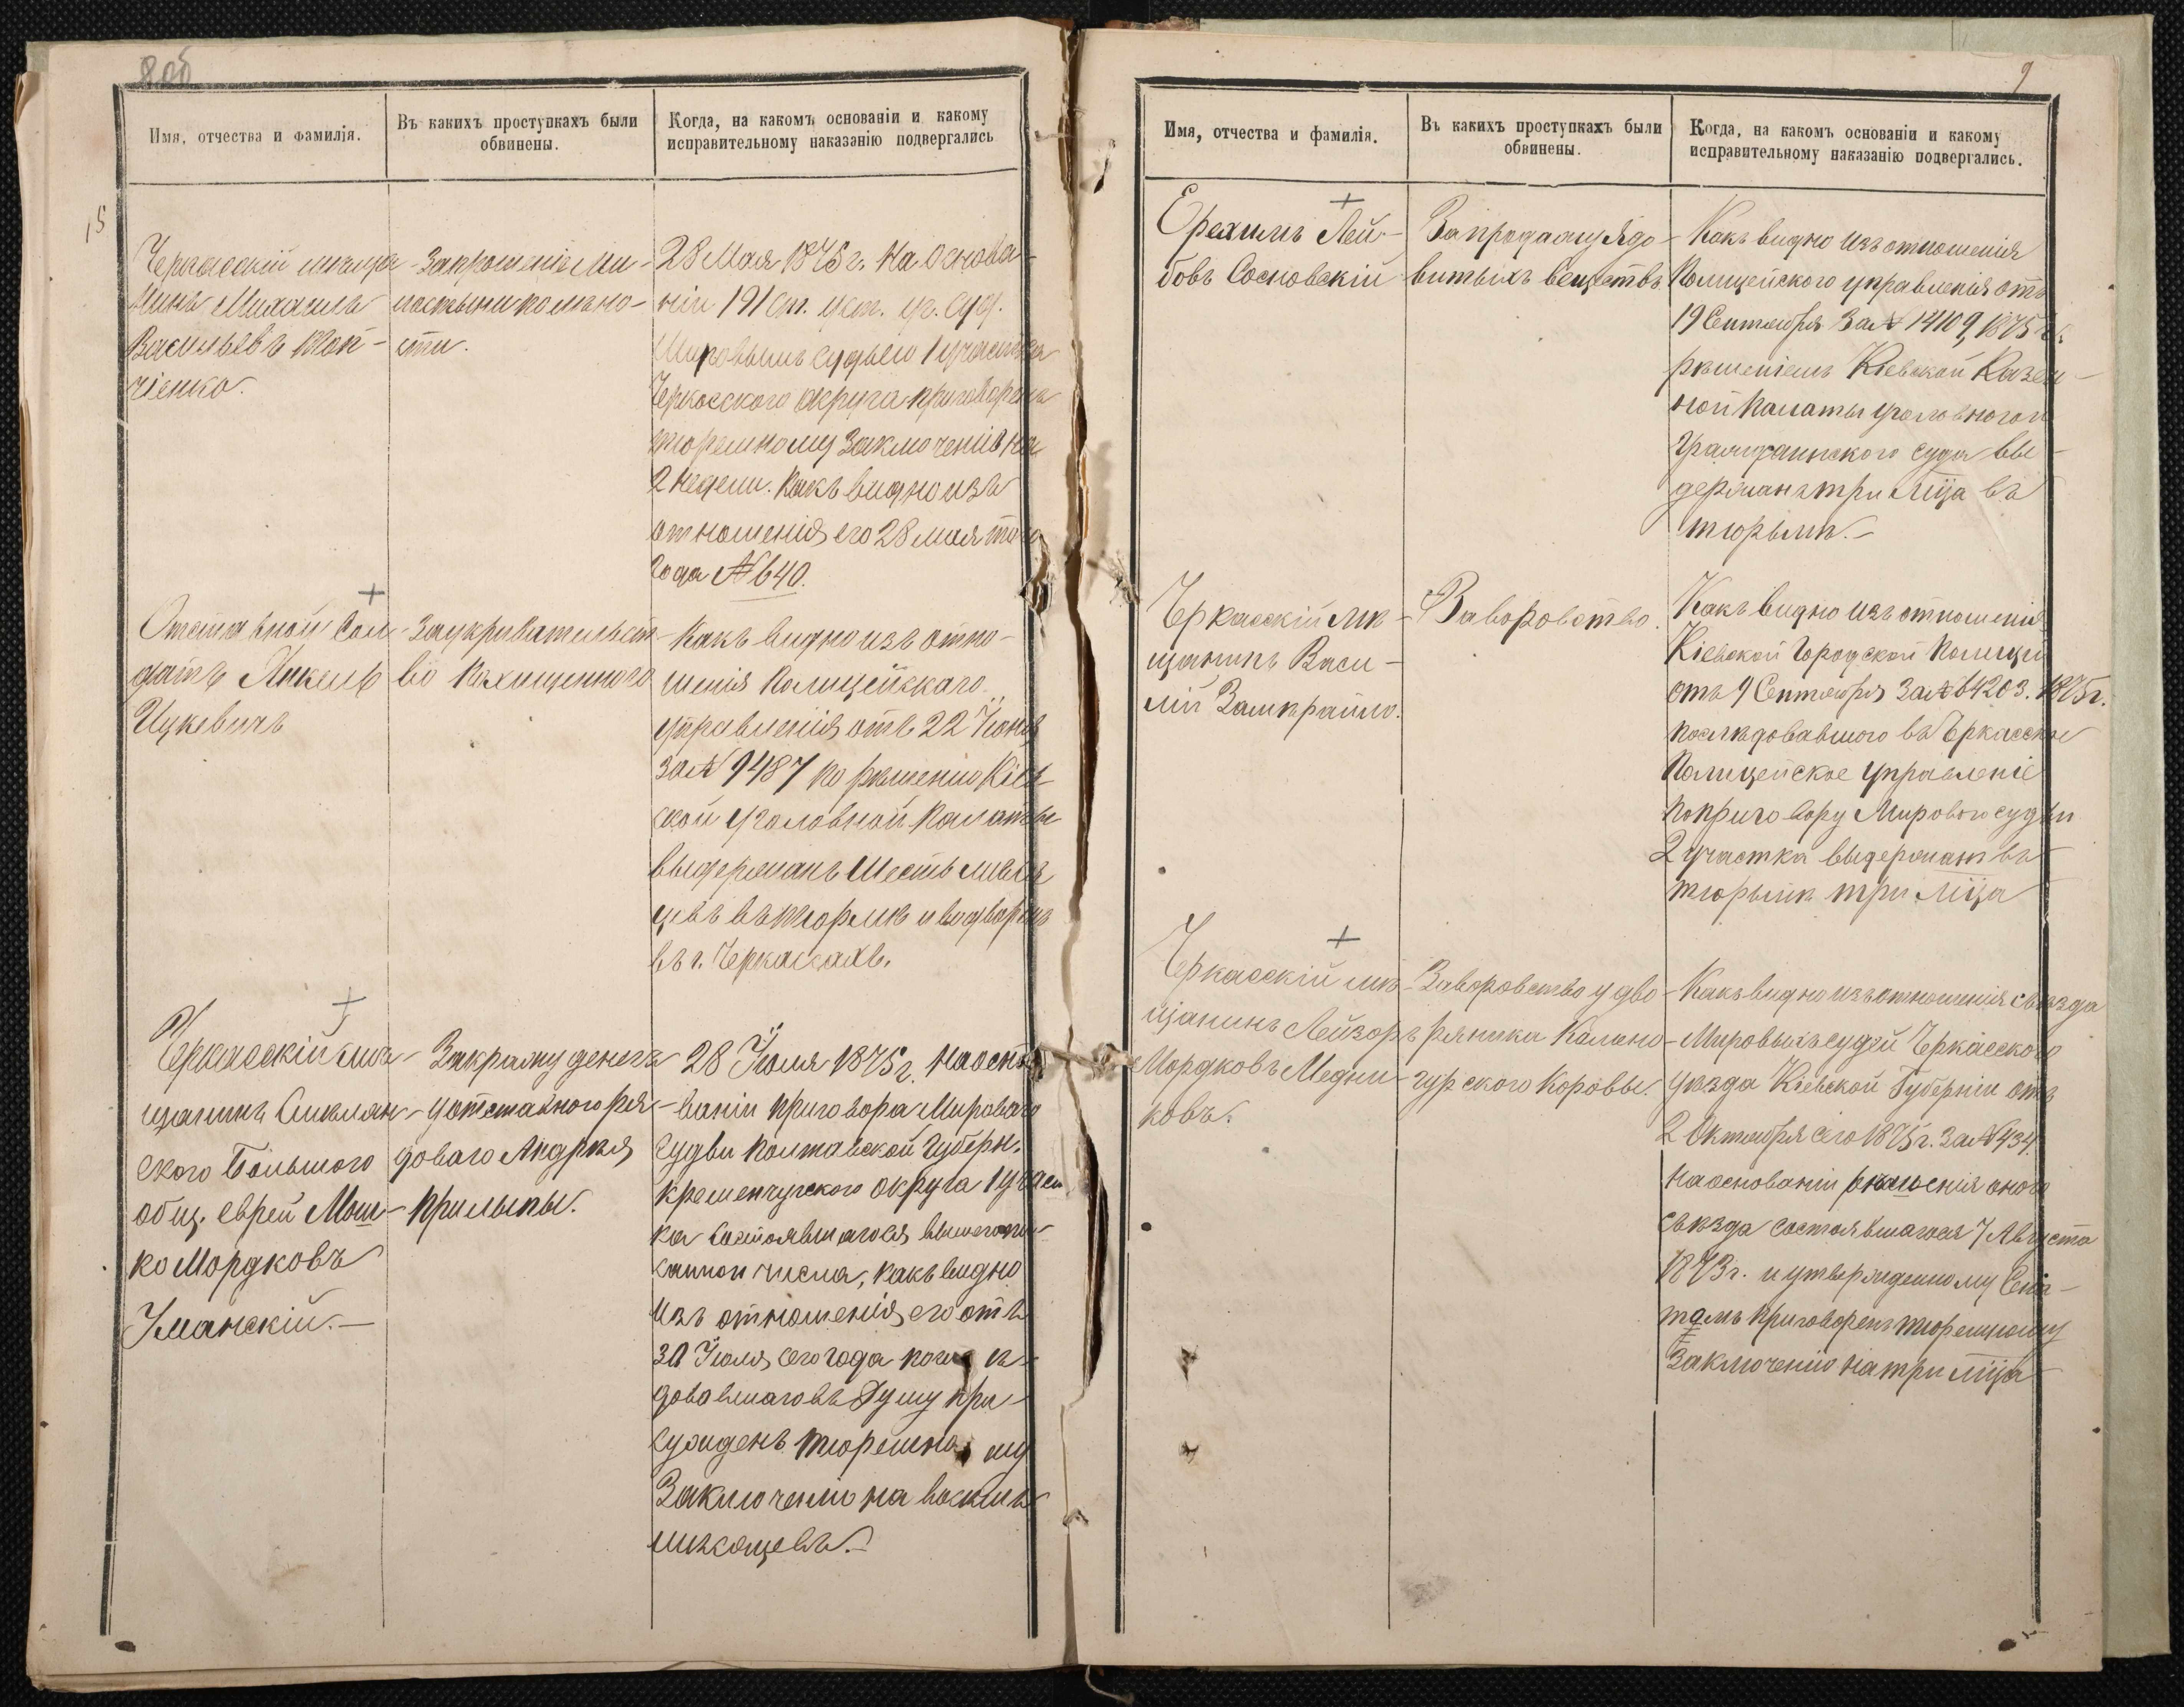 8 об
Имя, отчества и фамилія.
Въ какихъ проступкахъ были
обвинены.
Когда, на какомъ основаніи и какому
исправительному наказанію подвергались
15
Черкасскій мѣща-
нинъ Михаилъ
Васильевъ
ченко.
За прошеніе ми-
лостыни по лѣно-
сти.
28 Мая 1875 г. На основа-
ніи 191 ст. уст. уг. суд.
Мировымъ судьею 1 участка
Черкасского округа приговоренъ
тюремному заключенію на
2 недели. Какъ видно изъ
отношенія его 28 мая того
года № 640.
Отставной Сол-
датъ Янкель
Ицкевичъ
За укривательст-
во похищенного
Какъ видно изъ отно-
шенія Полицейскаго
управленія отъ 22 Іюня
за № 9487 по рѣшенію Кіев-
ской уголовной Палаты
выдержанъ Шесть мѣся-
цевъ въ тюрмѣ и водворенъ
въ г. Черкассахъ.
Черкасскій мѣ-
щанинъ Смѣлян-
ского Большого
общ. еврей Мош-
ко Мордковъ
Уманскій.-
За кражу денегъ
у отставного ря-
доваго Андрея
Прилыпы.
28 Іюля 1875 г. На осно-
ваніи приговора Мироваго
Судьи Полтавской Губерн.
Кременчугского округа 1 участ-
ка состоявшагося вышеопи-
санного числа, какъ видно
изъ отношенія его отъ
30 Іюля сего года
довавшаго въ Думу при-
сужденъ тюремному
Заключенію на восемь
мѣсяцевъ.-
9
Имя, отчества и фамилія.
Въ какихъ проступкахъ были
обвинены.
Когда, на какомъ основаніи и какому
исправительному наказанію подвергались.
Ерехимъ Лей-
бовъ Сосновскій
За продажу ядо-
витыхъ веществъ
Какъ видно изъ отношенія
Полицейского управленія отъ
19 Сентября за № 14109, 1875 г.
рѣшеніемъ Кіевской Казен-
ной Палаты уголовного и
гражданского суда вы-
держанъ три м-ца въ
тюрьмѣ.-
Черкасскій мѣ-
щанинъ Васи-
лій Замкрайло.
За воровство.
Какъ видно изъ отношенія
Кіевской Городской Полиціи
отъ 9 Сентября за № 64203. 1875 г.
послѣдовавшого въ Черкасское
Полицейское Управленіе
по приговору Мирового судьи
2 участка выдержанъ въ
тюрьмѣ три м-ца
Черкасскій мѣ-
щанинъ Лейзоръ
Мордковъ Медни-
ковъ.
За воровство у дво-
ряника Калино-
гурского Коровы.
Какъ видно изъ отношенія съѣзда
Мировыхъ судей Черкасского
уѣзда Кіевской Губерніи отъ
2 Октября сего 1875 г. за № 434.
На основаніи рѣшенія оного
съѣзда состоявшагося 7 Августа
1873 г. и утвержденному Сена-
томъ приговоренъ тюремному
заключенію на три м-ца